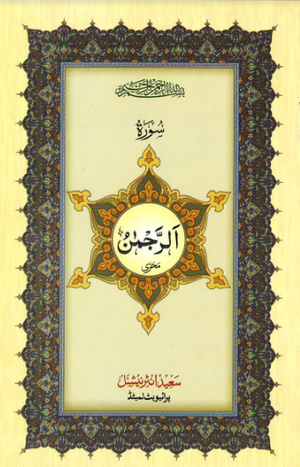 بسم الله الرحمن الرحيم
سُورَة
اَلرَّحْمٰنُ
سعید انٹرنیشنل
پرائیویٹ لمیٹڈ